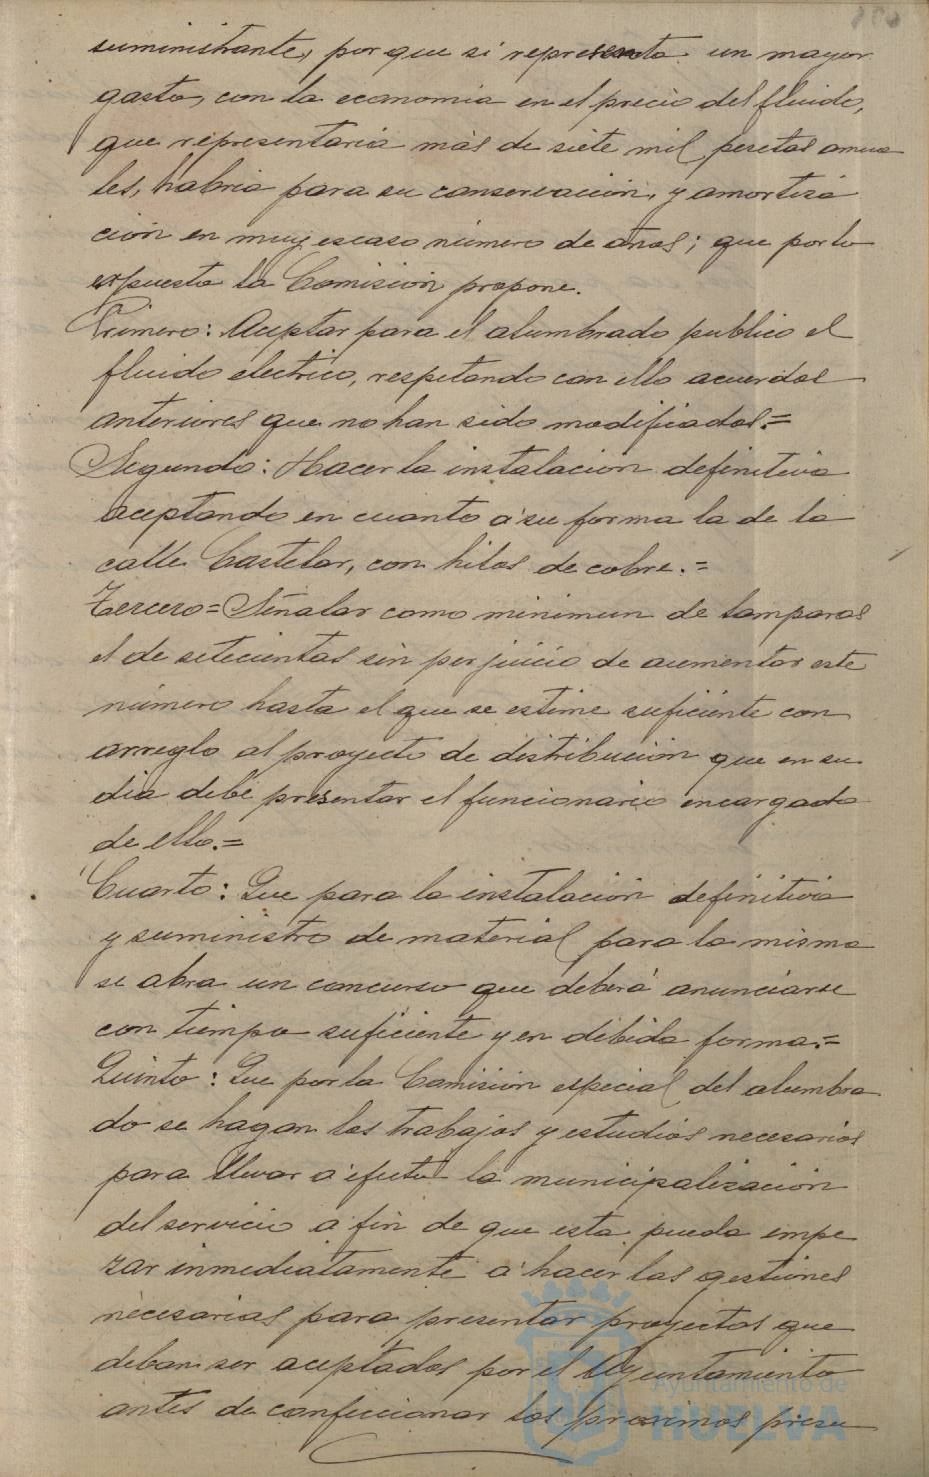 suministrante, por que si representa un mayor
gasto, con la economia en el precio del fluido,
que representaria más de siete mil pesetas anua
les, habria para su conservación, y amortiza
ción en muy escaso número de años; que por lo
expuesto la Comisión propone.
Primero: Aceptar para el alumbrado publico el
fluido electrico, respetando con ello acuerdos
anteriores que no han sido modificados.=
Segundo: Hacer la instalacion definitiva
aceptando en cuanto á su forma la de la
calle Castelar, con hilos de cobre.=
Tercero= Señalar como minimun de lamparas
el de setecientas sin perjuicio de aumentar este
número hasta el que se estime suficiente con
arreglo al proyecto de distribución que en su
dia debe presentar el funcionario encargado
de ello.=
Cuarto: Que para la instalación definitiva
y suministro de material para la misma
se abra un concurso que deberá anunciarse
con tiempo suficiente y en debida forma.=
Quinto: Que por la Comisión especial del alumbra
do se hagan los trabajos y estudios necesarios
para llevar á efecto la municipalización
del servicio á fin de que esta pueda empe
zar inmediatamente á hacer las gestiones
necesarias para presentar proyectos que
deban ser aceptados por el Ayuntamiento
antes de confeccionar los proximos presu
Ayuntamiento de
HUELVA